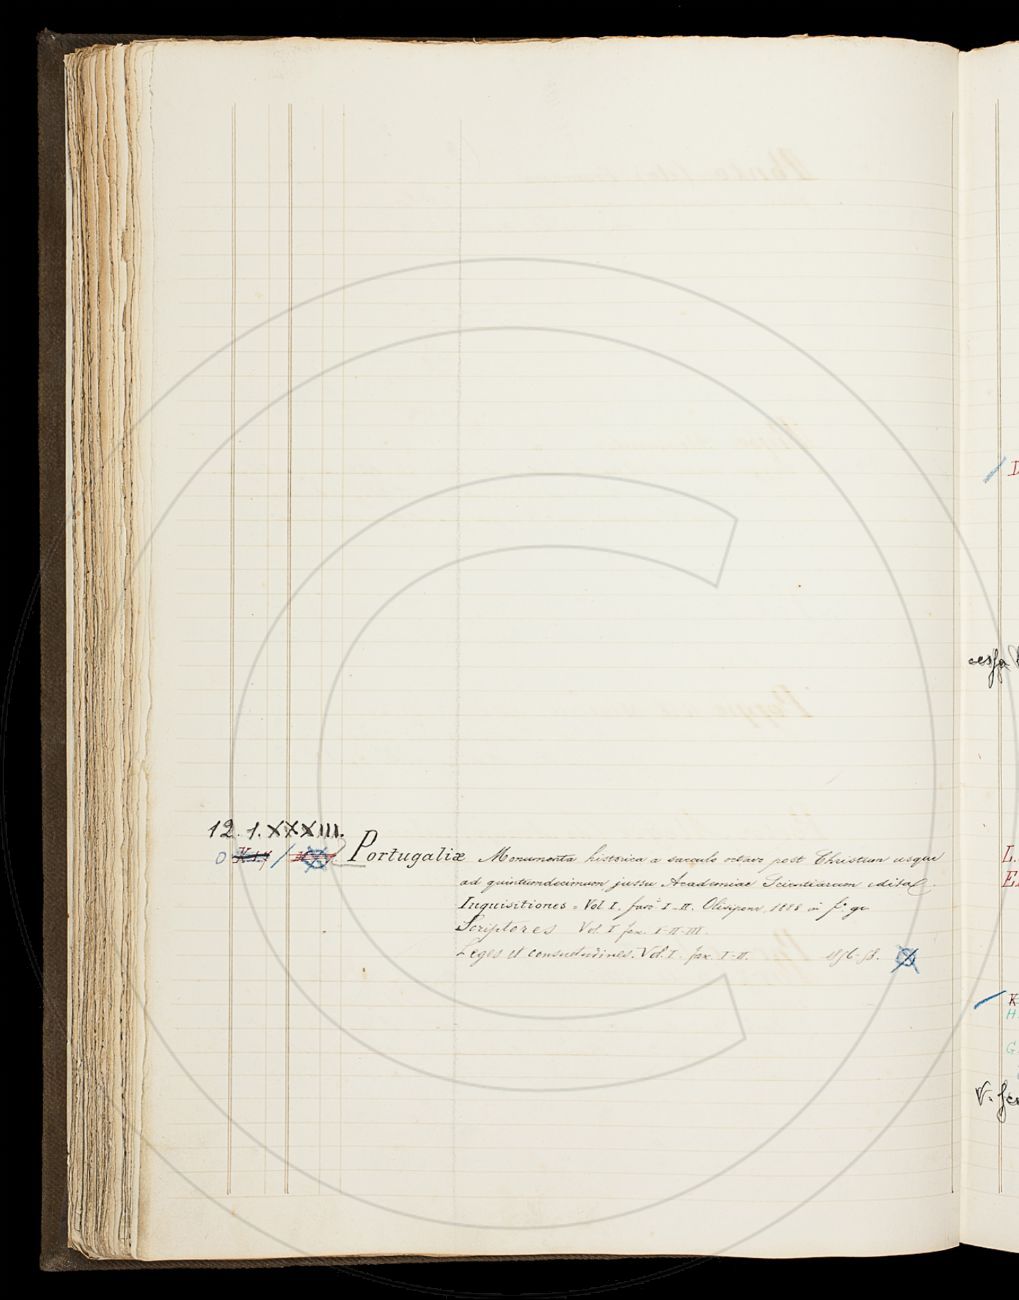 12. 1. XXXIII.
Portugaliæ Monumenta historica a saeculo octavo post Christum usque
ad quintumdecimum jussu Academiae Scientiarum edita
Inquisitiones = Vol. I. fasc. I-II. Olisipone, 1888 in f.º
Scriptores Vol. I fax. I-II-III.
Leges et consuetudines. Vol. I. fax. I-II. 1856-58.
L.
V.